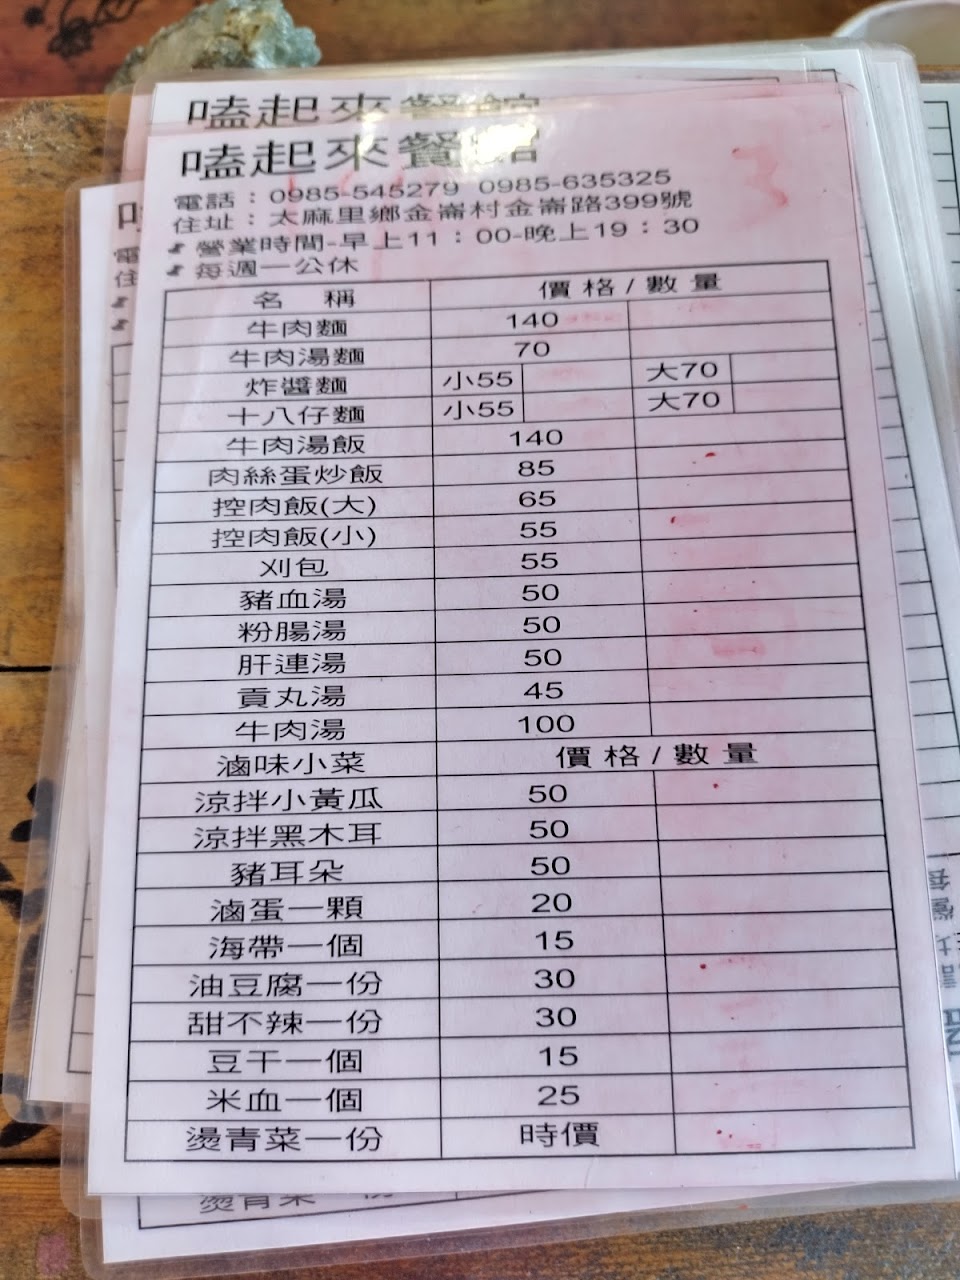 嗑起來餐館
嗑起來餐館
電話：0985-545279 0985-635325
住址：太麻里鄉金崙村金崙路399號
營業時間-早上11：00-晚上19：30
每週一公休
名 稱 價格/數量
牛肉麵 140
牛肉湯麵 70
炸醬麵 小55 大70
十八仔麵 小55 大70
牛肉湯飯 140
肉絲蛋炒飯 85
控肉飯(大) 65
控肉飯(小) 55
刈包 55
豬血湯 50
粉腸湯 50
肝連湯 50
貢丸湯 45
牛肉湯 100
滷味小菜 價格/數量
涼拌小黃瓜 50
涼拌黑木耳 50
豬耳朵 50
滷蛋一顆 20
海帶一個 15
油豆腐一份 30
甜不辣一份 30
豆干一個 15
米血一個 25
燙青菜一份 時價